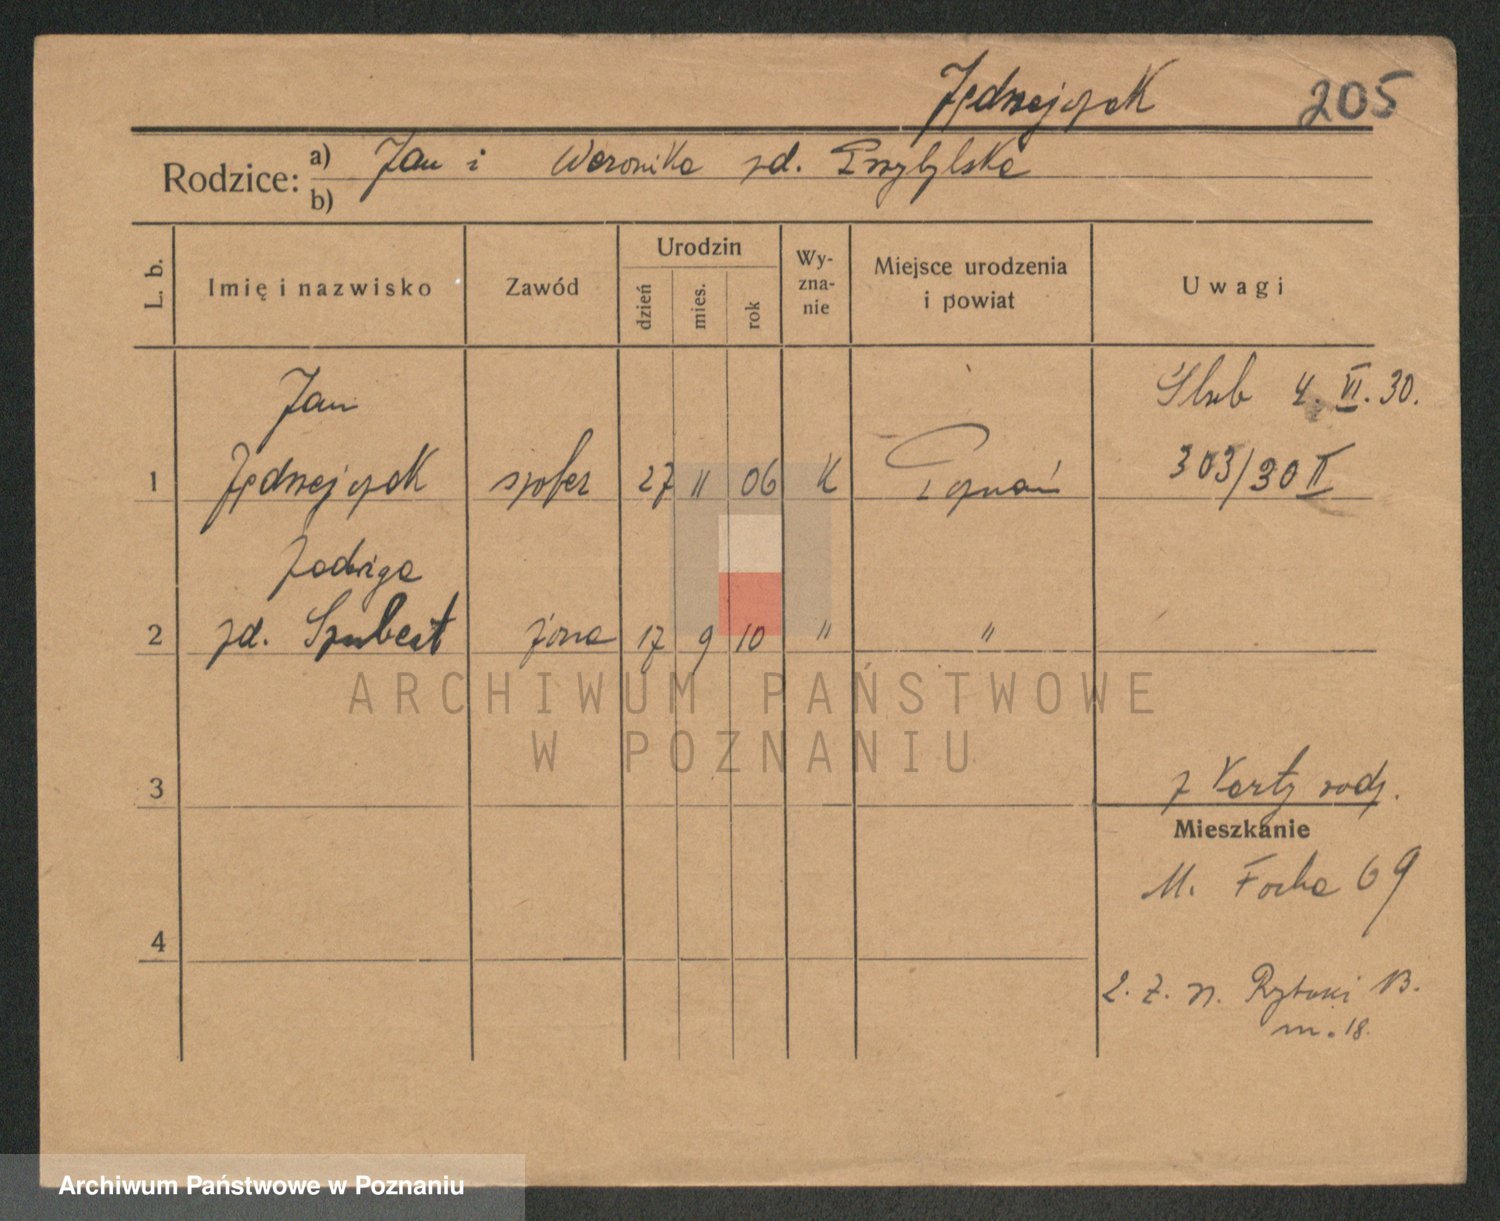 Jędrzejczak 205
Rodzice: a) Jan i Weronika zd. Przybylska
b)
L. b. Imię i nazwisko Zawód Urodzin dzień mies. rok Wy-zna-nie Miejsce urodzenia i powiat Uwagi
Jan Ślub 4. VI. 30.
1 Jędrzejczak szofer 27 11 06 K Poznań 303/30 II
Jadwiga
2 zd. Szubert żona 17 9 10 " "
3 z Karty rodz.
Mieszkanie
M. Focha 69
4
2. Z. n. Rytaki 13.
m. 18.
ARCHIWUM PAŃSTWOWE
W POZNANIU
Archiwum Państwowe w Poznaniu